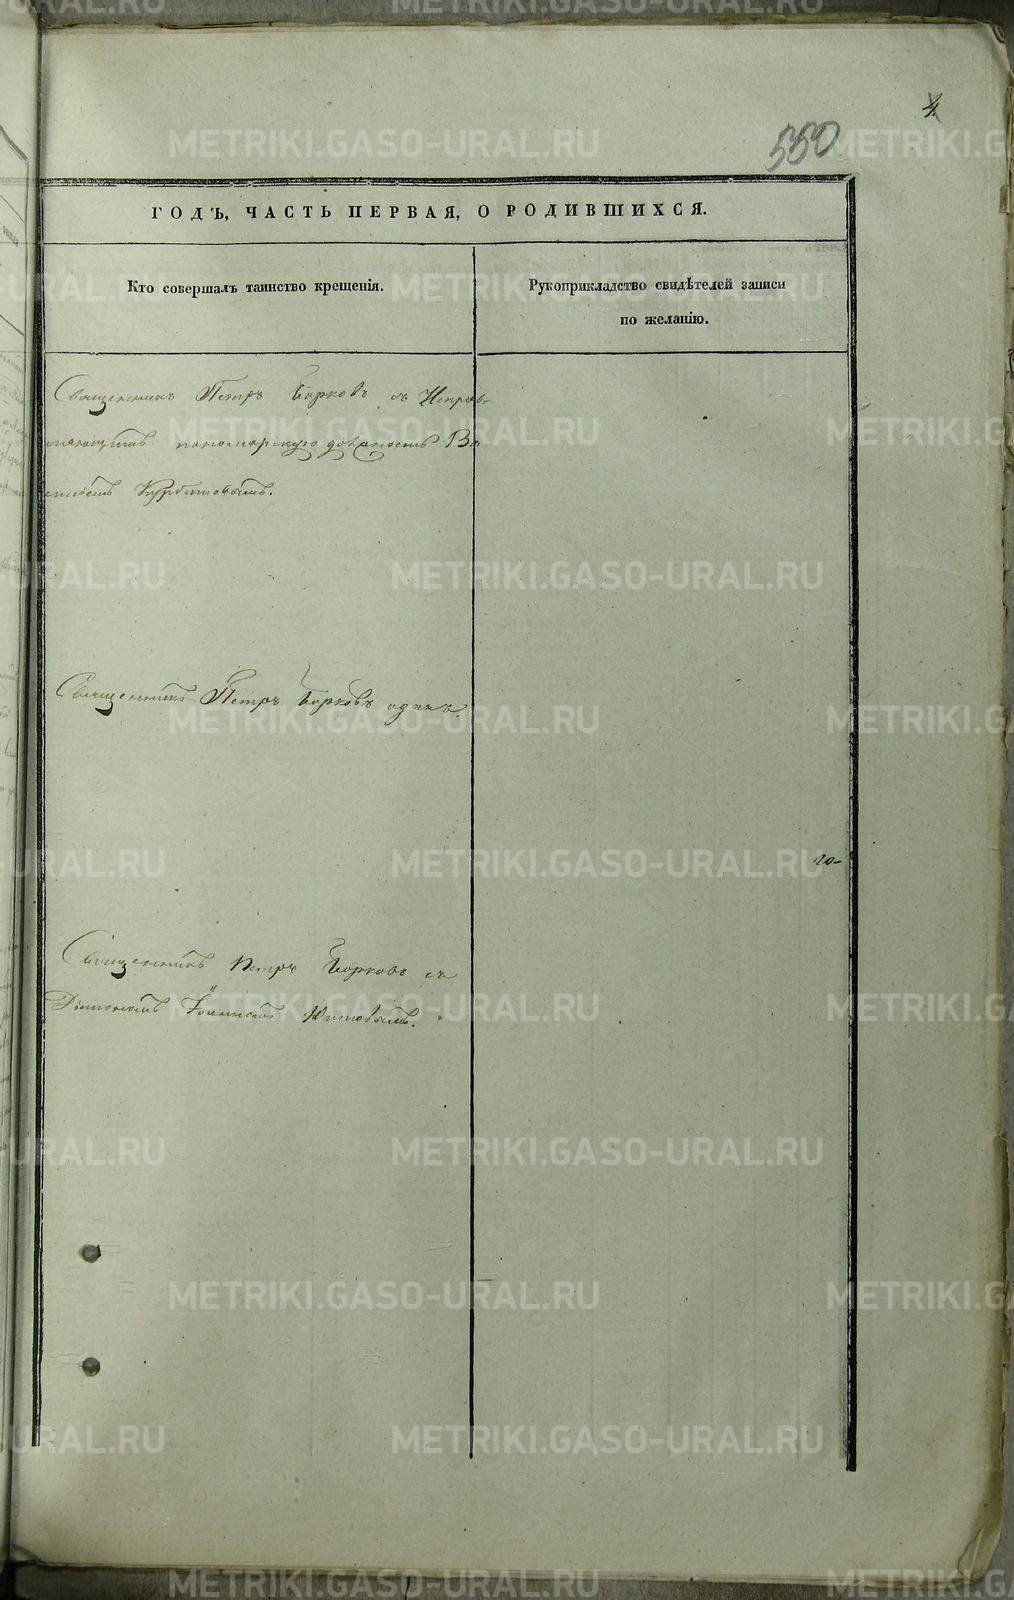 4
550
ГОДЪ, ЧАСТЬ ПЕРВАЯ, О РОДИВШИХСЯ.
Кто совершалъ таинство крещенія.
Рукоприкладство свидѣтелей записи
по желанію.
Священникъ Петръ Борковъ съ Исправ-
ляющимъ пономарскую должность Ва-
Курбатовымъ.
Священникъ Петръ Борковъ одинъ.
го-
Священникъ Петръ Борковъ съ
Діакономъ Іоанномъ
METRIKI.GASO-URAL.RU